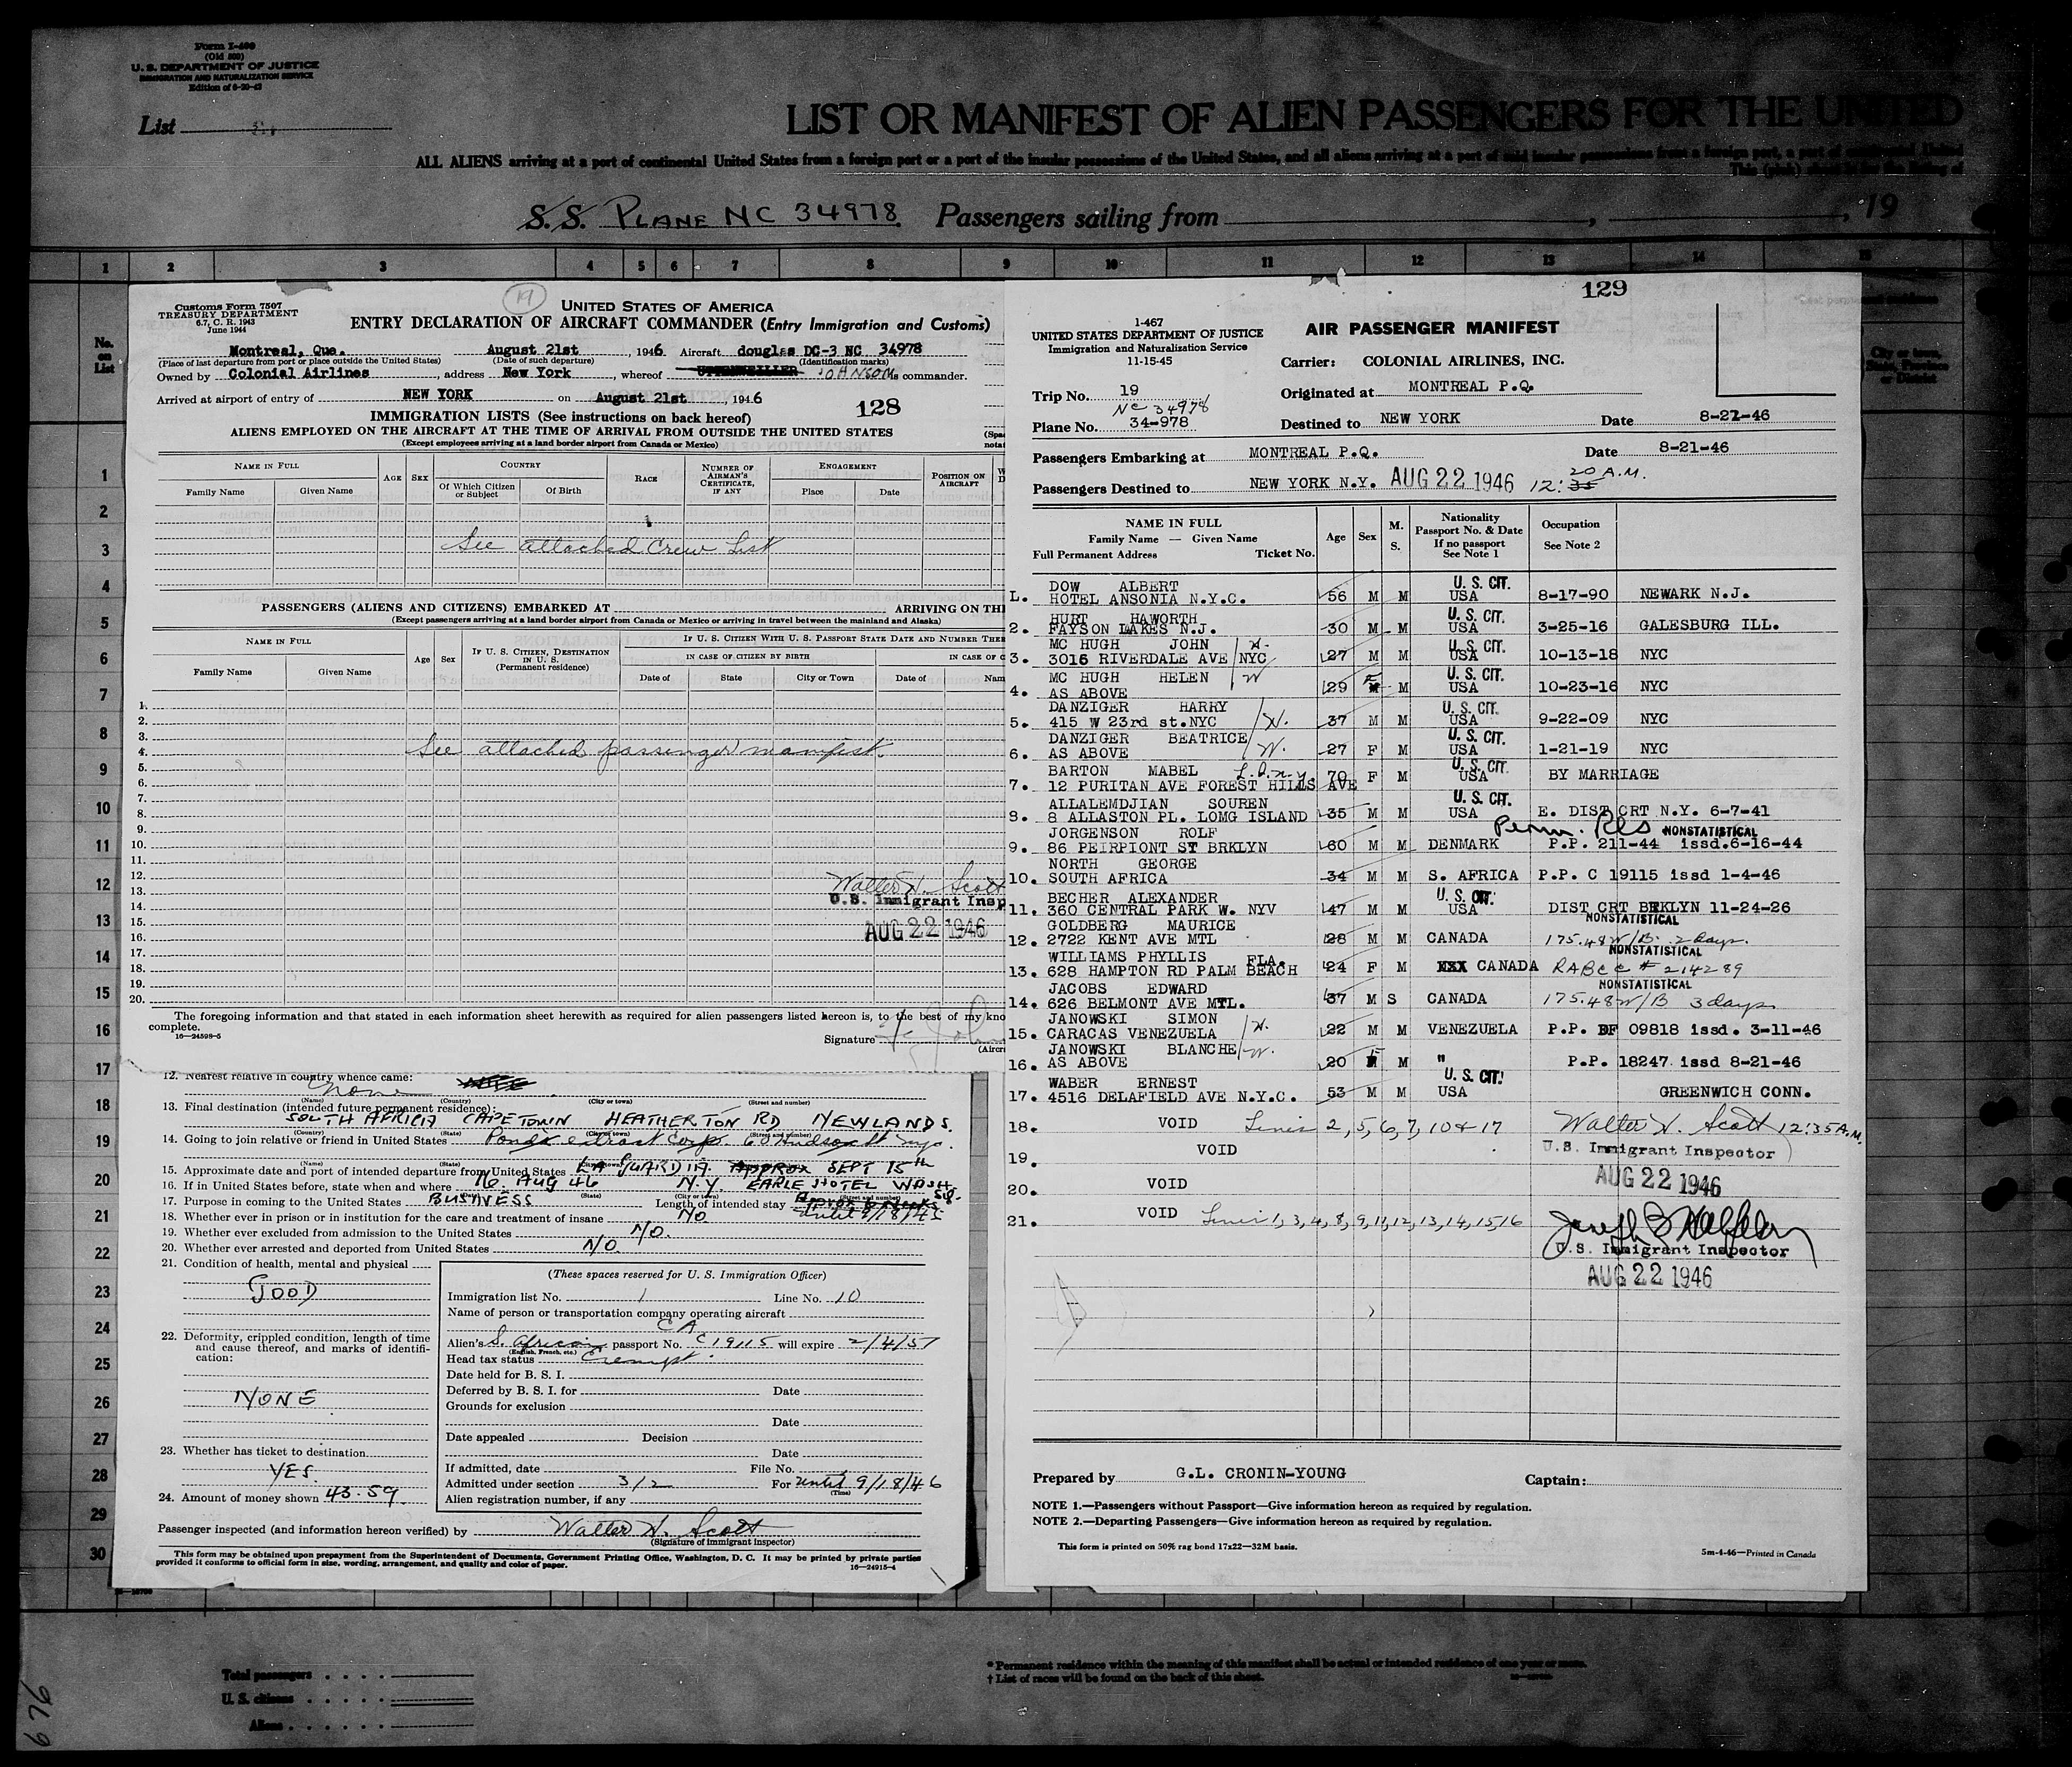 Form I-400
(Old 500)
U. S. DEPARTMENT OF JUSTICE
IMMIGRATION AND NATURALIZATION SERVICE
Edition of 6-20-42
List
LIST OR MANIFEST OF ALIEN PASSENGERS FOR THE UNITED
ALL ALIENS arriving at a port of continental United States from a foreign port or a port of the insular possessions of the United States, and all aliens arriving at a port of said insular possessions from a foreign port, a port of continental United
S. S. PLANE NC 34978 Passengers sailing from , , 19
1 2 3 4 5 6 7 8 9 10 11 12 13 14 15
No. on List
1
2
3
4
5
6
7
8
9
10
11
12
13
14
15
16
17
18
19
20
21
22
23
24
25
26
27
28
29
30
Customs Form 7507
TREASURY DEPARTMENT
6.7, C. R. 1943
June 1944
19
UNITED STATES OF AMERICA
ENTRY DECLARATION OF AIRCRAFT COMMANDER (Entry Immigration and Customs)
Montreal, Que. August 21st , 1946 Aircraft douglas DC-3 NC 34978
(Place of last departure from port or place outside the United States) (Date of such departure) (Identification marks)
Owned by Colonial Airlines , address New York , whereof JOHNSON is commander.
Arrived at airport of entry of NEW YORK on August 21st , 1946
128
IMMIGRATION LISTS (See instructions on back hereof)
ALIENS EMPLOYED ON THE AIRCRAFT AT THE TIME OF ARRIVAL FROM OUTSIDE THE UNITED STATES
(Except employees arriving at a land border airport from Canada or Mexico)
NAME IN FULL AGE SEX COUNTRY RACE NUMBER OF AIRMAN'S CERTIFICATE, IF ANY ENGAGEMENT POSITION ON AIRCRAFT
Family Name Given Name Of Which Citizen or Subject Of Birth Place Date
See attached Crew List
PASSENGERS (ALIENS AND CITIZENS) EMBARKED AT ARRIVING ON TH
(Except passengers arriving at a land border airport from Canada or Mexico or arriving in travel between the mainland and Alaska)
NAME IN FULL Age Sex IF U. S. CITIZEN, DESTINATION IN U. S. (Permanent residence) IF U. S. CITIZEN WITH U. S. PASSPORT STATE DATE AND NUMBER THER
IN CASE OF CITIZEN BY BIRTH IN CASE OF C
Family Name Given Name Date of State City or Town Date of Nam
1.
2.
3.
4. See attached passenger manifest
5.
6.
7.
8.
9.
10.
11.
12.
13. Walter H. Scott
14. U.S. Immigrant Insp
15.
16. AUG 22 1946
17.
18.
19.
20.
The foregoing information and that stated in each information sheet herewith as required for alien passengers listed hereon is, to the best of my kno
complete.
16—24598-5
Signature
(Aircr
12. Nearest relative in country whence came:
none
(Name) (Country) (City or town) (Street and number)
13. Final destination (intended future permanent residence):
SOUTH AFRICA CAPETOWN HEATHERTON RD NEWLANDS.
(Country) (State) (City or town) (Street and number)
14. Going to join relative or friend in United States Ponds extract Corp. 60 Hudson St nyc.
(Name) (State) (City or town) (Street and number)
15. Approximate date and port of intended departure from United States LA GUARDIA. APPROX SEPT 15th
16. If in United States before, state when and where 16 AUG 46 N.Y. EARLE HOTEL WASH. SQ.
(Date) (State) (City or town) (Street and number)
17. Purpose in coming to the United States BUSINESS Length of intended stay
18. Whether ever in prison or in institution for the care and treatment of insane NO
19. Whether ever excluded from admission to the United States NO.
20. Whether ever arrested and deported from United States NO.
21. Condition of health, mental and physical
GOOD
22. Deformity, crippled condition, length of time and cause thereof, and marks of identification:
NONE
23. Whether has ticket to destination
YES.
24. Amount of money shown 43.59
(These spaces reserved for U. S. Immigration Officer)
Immigration list No. 1 Line No. 10
Name of person or transportation company operating aircraft
CA
Alien's S. African passport No. C19115 will expire 2/4/51
(English, French, etc.)
Head tax status Exempt.
Date held for B. S. I.
Deferred by B. S. I. for Date
Grounds for exclusion
Date
Date appealed Decision
Date
If admitted, date File No.
Admitted under section 3/2 For until 9/18/46
(Time)
Alien registration number, if any
Passenger inspected (and information hereon verified) by Walter H. Scott
(Signature of immigrant inspector)
This form may be obtained upon prepayment from the Superintendent of Documents, Government Printing Office, Washington, D. C. It may be printed by private parties
provided it conforms to official form in size, wording, arrangement, and quality and color of paper.
16—24915-4
129
I-467
UNITED STATES DEPARTMENT OF JUSTICE
Immigration and Naturalization Service
11-15-45
AIR PASSENGER MANIFEST
Carrier: COLONIAL AIRLINES, INC.
Trip No. 19
Originated at MONTREAL P.Q.
NC 34978
Plane No. 34-978
Destined to NEW YORK Date 8-21-46
Passengers Embarking at MONTREAL P.Q. Date 8-21-46
Passengers Destined to NEW YORK N.Y. AUG 22 1946 12:35 20 A.M.
NAME IN FULL
Family Name — Given Name
Full Permanent Address Ticket No.
Age Sex M. S.
Nationality Passport No. & Date If no passport See Note 1
Occupation See Note 2
DOW ALBERT U. S. CIT.
1. HOTEL ANSONIA N.Y.C. 56 M M USA 8-17-90 NEWARK N.J.
HURT HAWORTH U. S. CIT.
2. FAYSON LAKES N.J. 30 M M USA 3-25-16 GALESBURG ILL.
MC HUGH JOHN H. U. S. CIT.
3. 3015 RIVERDALE AVE NYC 27 M M USA 10-13-18 NYC
MC HUGH HELEN W U. S. CIT.
4. AS ABOVE 29 F M USA 10-23-16 NYC
DANZIGER HARRY U. S. CIT.
5. 415 W 23rd st.NYC H. 37 M M USA 9-22-09 NYC
DANZIGER BEATRICE U. S. CIT.
6. AS ABOVE W. 27 F M USA 1-21-19 NYC
BARTON MABEL U. S. CIT.
7. 12 PURITAN AVE FOREST HILLS AVE 70 F M USA BY MARRIAGE
ALLALEMDJIAN SOUREN U. S. CIT.
8. 8 ALLASTON PL. LOMG ISLAND 35 M M USA E. DIST CRT N.Y. 6-7-41
JORGENSON ROLF Perm. Res NONSTATISTICAL
9. 86 PEIRPIONT ST BRKLYN 60 M M DENMARK P.P. 211-44 issd.6-16-44
NORTH GEORGE
10. SOUTH AFRICA 34 M M S. AFRICA P.P. C 19115 issd 1-4-46
BECHER ALEXANDER U. S. CIT.
11. 360 CENTRAL PARK W. NYV 47 M M USA DIST CRT BRKLYN 11-24-26
GOLDBERG MAURICE NONSTATISTICAL
12. 2722 KENT AVE MTL 28 M M CANADA 175.48 W/B. 2 days.
WILLIAMS PHYLLIS FLA. NONSTATISTICAL
13. 628 HAMPTON RD PALM BEACH 24 F M XXX CANADA RABCC # 214289
JACOBS EDWARD NONSTATISTICAL
14. 626 BELMONT AVE MTL. 37 M S CANADA 175.48 W/B 3 days
JANOWSKI SIMON
15. CARACAS VENEZUELA H. 22 M M VENEZUELA P.P. DF 09818 issd. 3-11-46
JANOWSKI BLANCHE W.
16. AS ABOVE 20 F M " P.P. 18247 issd 8-21-46
WABER ERNEST U. S. CIT.
17. 4516 DELAFIELD AVE N.Y.C. 53 M M USA GREENWICH CONN.
18. VOID Lines 2, 5, 6, 7, 10 & 17 Walter H. Scott 12:35 A.M.
19. VOID U.S. Immigrant Inspector
20. VOID AUG 22 1946
21. VOID Lines 1, 3, 4, 8, 9, 11, 12, 13, 14, 15, 16
U.S. Immigrant Inspector
AUG 22 1946
Prepared by G.L. CRONIN-YOUNG Captain:
NOTE 1.—Passengers without Passport—Give information hereon as required by regulation.
NOTE 2.—Departing Passengers—Give information hereon as required by regulation.
This form is printed on 50% rag bond 17x22—32M basis.
5m-4-46—Printed in Canada
Total passengers
U. S. citizens
Aliens
* Permanent residence within the meaning of this manifest shall be actual or intended residence of one year or more.
† List of races will be found on the back of this sheet.
976